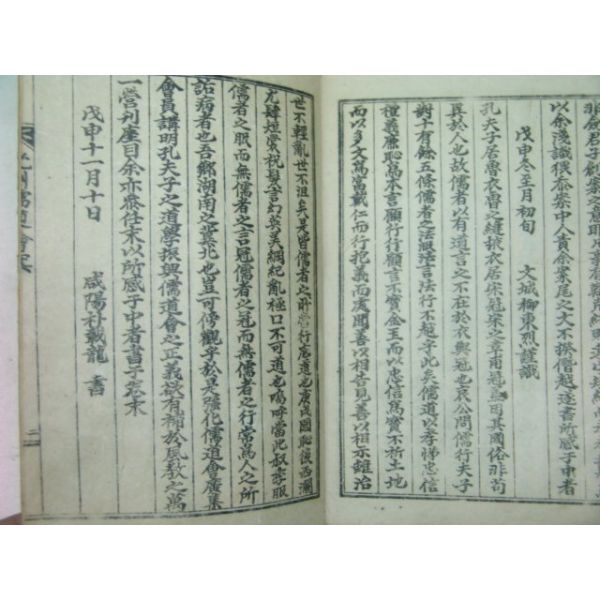 以余淺識猥忝案中人責余案尾之文不揆僭越遂書所感于中者
戊申冬至月初旬 文城柳東烈謹識
孔夫子居魯衣魯之縫掖衣居宋冠宋之章甫冠 因其國俗非苟
異於人也故儒者以有遺言之不在於衣與冠也哀公問儒行夫子
對十有餘五條儒者之法服法言法行不越乎此矣儒道以孝悌忠信
禮義廉恥爲本言顧行行顧言不寶金玉而以忠信爲寶不祈土地
而以多文爲富戴仁而行抱義而處聞善以相告見善以相示雖治
世不輕亂世不沮矣是皆儒者之所當行底道也庚戌國恥後西瀾
尤肆短裳稅髮言幻英美綱紀亂極口不可道也嗚呼當此叔季服
儒者之服而無儒者之言冠儒者之冠而無儒者之行常爲人之所
詬病者也吾鄉湖南之冀北也豈可傍觀乎於是強化儒道會廣集
會員講明孔夫子之道學振興儒道會之正義欲有補於風敎之萬
一營刊座目余亦忝任末以所感于中者書于卷末
戊申十一月十日 咸陽朴載龍 書
二